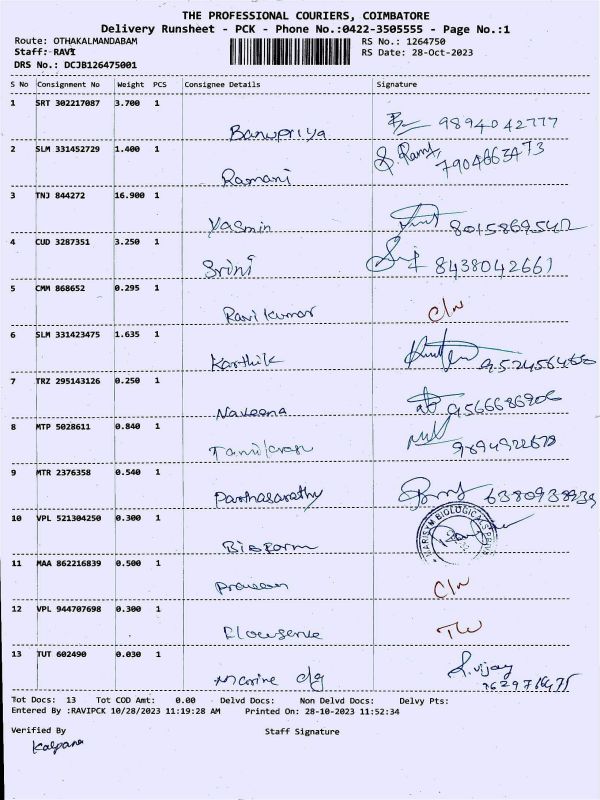 THE PROFESSIONAL COURIERS, COIMBATORE
Delivery Runsheet - PCK - Phone No.:0422-3505555 - Page No.:1
Route: OTHAKALMANDABAM RS No.: 1264750
Staff: RAVI RS Date: 28-Oct-2023
DRS No.: DCJB126475001
S No Consignment No Weight PCS Consignee Details Signature
1 SRT 302217087 3.700 1
Banupriya 9894042777
2 SLM 331452729 1.400 1
Ramani S. Ramy 7904663473
3 TNJ 844272 16.900 1
Yasmin
4 CUD 3287351 3.250 1
Srini 8438042661
5 CMM 868652 0.295 1
Ravi kumar C/w
6 SLM 331423475 1.635 1
Karthik
7 TRZ 295143126 0.250 1
Naveena 9566686906
8 MTP 5028611 0.840 1
9894922678
9 MTR 2376358 0.540 1
Parthasarathy 6380938939
10 VPL 521304250 0.300 1
MARISYM BIOLOGICALS
11 MAA 862216839 0.500 1
Praveen C/w
12 VPL 944707698 0.300 1
Flowserve
13 TUT 602490 0.030 1
Marine S. vijay
Tot Docs: 13 Tot COD Amt: 0.00 Delvd Docs: Non Delvd Docs: Delvy Pts:
Entered By :RAVIPCK 10/28/2023 11:19:28 AM Printed On: 28-10-2023 11:52:34
Verified By Staff Signature
Kalpana